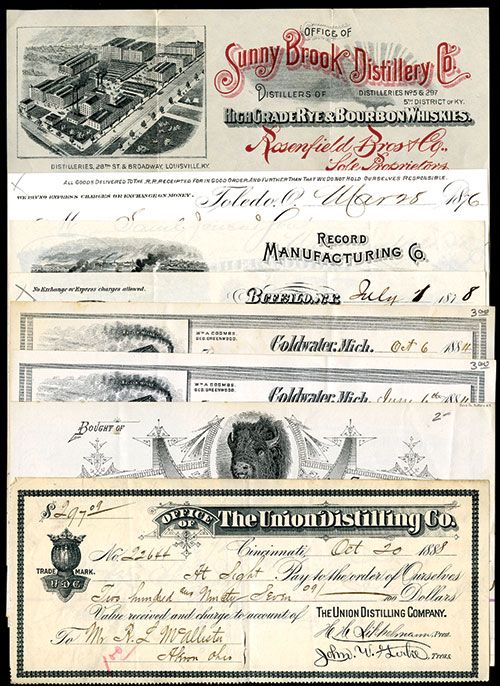 OFFICE OF
Sunny Brook Distillery Co.
DISTILLERS OF
DISTILLERIES Nos 5 & 297
5TH DISTRICT OF KY.
HIGH GRADE RYE & BOURBON WHISKIES.
Rosenfield Bros & Co.
Sole Proprietors
DISTILLERIES, 28TH ST. & BROADWAY, LOUISVILLE, KY.
ALL GOODS DELIVERED TO THE R.R. RECEIPTED FOR IN GOOD ORDER, AND FURTHER THAN THAT WE DO NOT HOLD OURSELVES RESPONSIBLE.
WE PAY NO EXPRESS CHARGES OR EXCHANGE ON MONEY.
Toledo, O. Mar 28 1896
RECORD
MANUFACTURING CO.
No Exchange or Express charges allowed.
BUFFALO, N.Y. July 8 1878
300
WM A COOMBS.
GEO. GREENWOOD.
Coldwater, Mich. Oct 6 1884
300
WM A COOMBS.
GEO. GREENWOOD.
Coldwater, Mich. June 6th 1884
2-
BOUGHT OF
$297.09
OFFICE OF The Union Distilling Co.
No. 22644 Cincinnati, Oct 20 1888
TRADE MARK.
U.D.C.
At Sight Pay to the order of Ourselves
Two hundred and Ninety Seven 09/100 Dollars
Value received and charge to account of
THE UNION DISTILLING COMPANY.
To Mr. R. L. McAllister
Akron Ohio
Pres.
John W.
Treas.